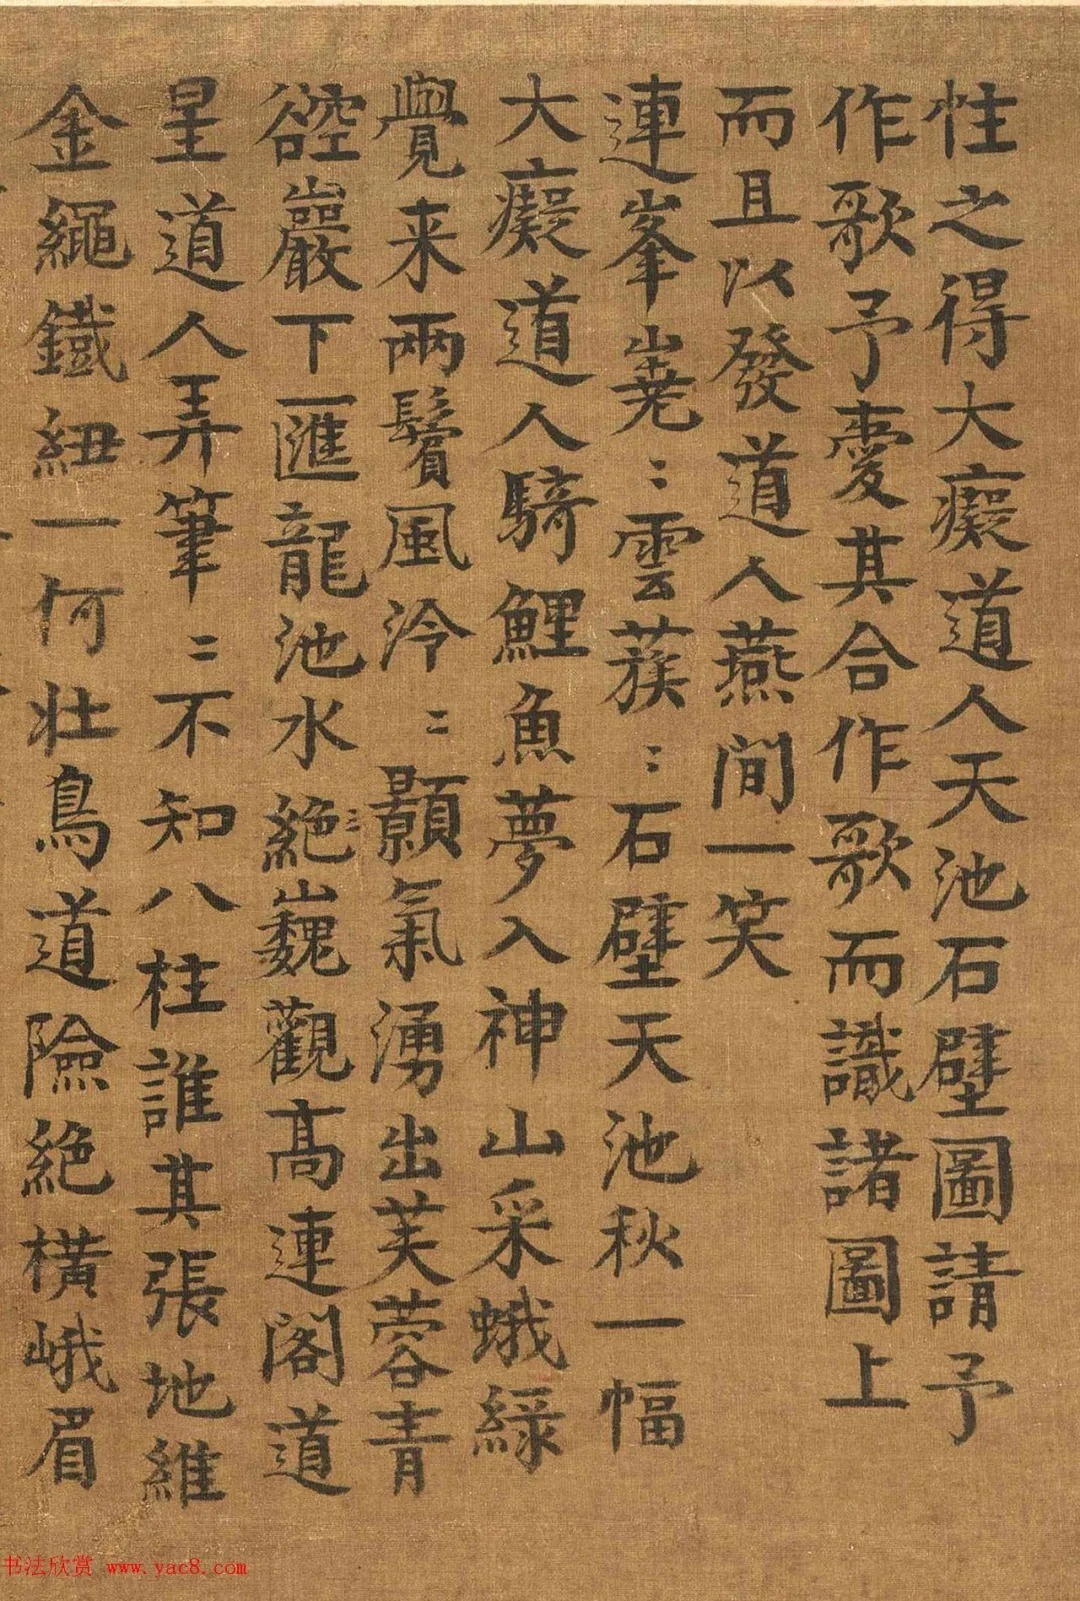 性之得大癡道人天池石壁圖請予
作歌予愛其合作歌而識諸圖上
而且以發道人燕間一笑
連峯嶤〻雲蔟〻石壁天池秋一幅
大癡道人騎鯉魚夢入神山采蛾綠
覺来兩鬢風泠〻顥氣湧出芙蓉青
谾巖下匯龍池水絶巍觀高連閣道
星道人弄筆〻不知八柱誰其張地維
金繩鐵紐一何壯鳥道險絶橫峨眉
书法欣赏 www.yac8.com